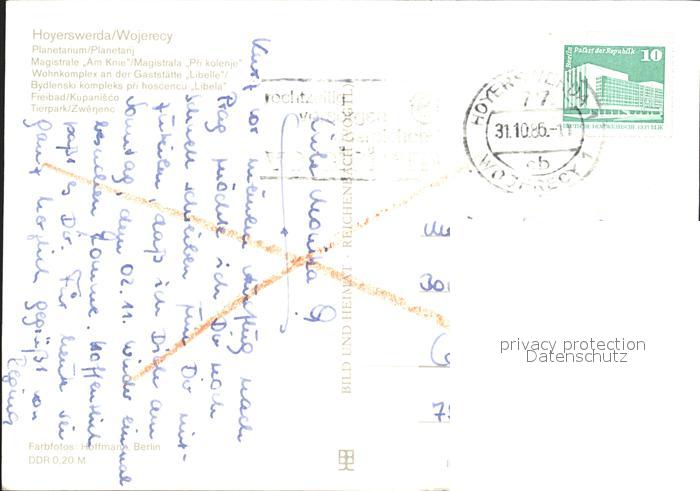 Hoyerswerda/Wojerecy
Planetarium/Planetarij
Magistrale „Am Knie"/Magistrala „Při kolenje"
Wohnkomplex an der Gaststätte „Libelle"/
Bydlenski kompleks při hosćencu „Libela"
Freibad/Kupanišćo
Tierpark/Zwěrjenc
Liebe Monika!
Kurz vor meinem Ausflug nach
Prag möchte ich Dir noch
schnell schreiben und Dir mit-
zuteilen, daß ich Dich am
Sonntag, dem 02.11. wieder einmal
besuchen komme. Hoffentlich
paßt es Dir. Für heute sei
ganz herzlich gegrüßt von
Regina
BILD UND HEIMAT · REICHENBACH (VOGTL)
Berlin Palast der Republik 10
DEUTSCHE DEMOKRATISCHE REPUBLIK
HOYERSWERDA 1
77
31.10.86.-11
cb
WOJERECY 1
privacy protection
Datenschutz
Farbfotos: Hoffmann, Berlin
DDR 0,20 M